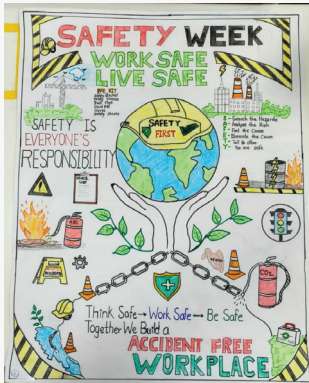 SAFETY WEEK
WORK SAFE
LIVE SAFE
PPE KIT
SAFETY IS
EVERYONE'S
RESPONSIBILITY
SAFETY
FIRST
S - Search the Hazards
A - Analyse the Risk
F - Find the Cause
E - Eliminate the Cause
T - Tell to other
Y - You are safe
ABC
CO₂
Think Safe → Work Safe → Be Safe
Together We Build a
ACCIDENT FREE
WORKPLACE